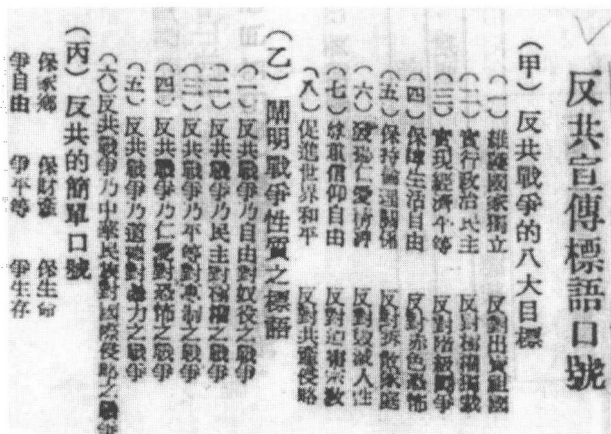 反共宣傳標語口號
（甲）反共戰爭的八大目標
（一）維護國家獨立 反對出賣祖國
（二）實行政治民主 反對極權獨裁
（三）實現經濟平等 反對階級鬪爭
（四）保障生活自由 反對赤色恐怖
（五）保持倫理關係 反對拆散家庭
（六）發揚仁愛精神 反對毀滅人性
（七）尊重信仰自由 反對迫害宗教
（八）促進世界和平 反對共產侵略
（乙）闡明戰爭性質之標語
（一）反共戰爭乃自由對奴役之戰爭
（二）反共戰爭乃民主對極權之戰爭
（三）反共戰爭乃平等對專制之戰爭
（四）反共戰爭乃仁愛對恐怖之戰爭
（五）反共戰爭乃道德對暴力之戰爭
（六）反共戰爭乃中華民族對國際侵略之戰爭
（丙）反共的簡單口號
保家鄉 保財產 保生命
爭自由 爭平等 爭生存